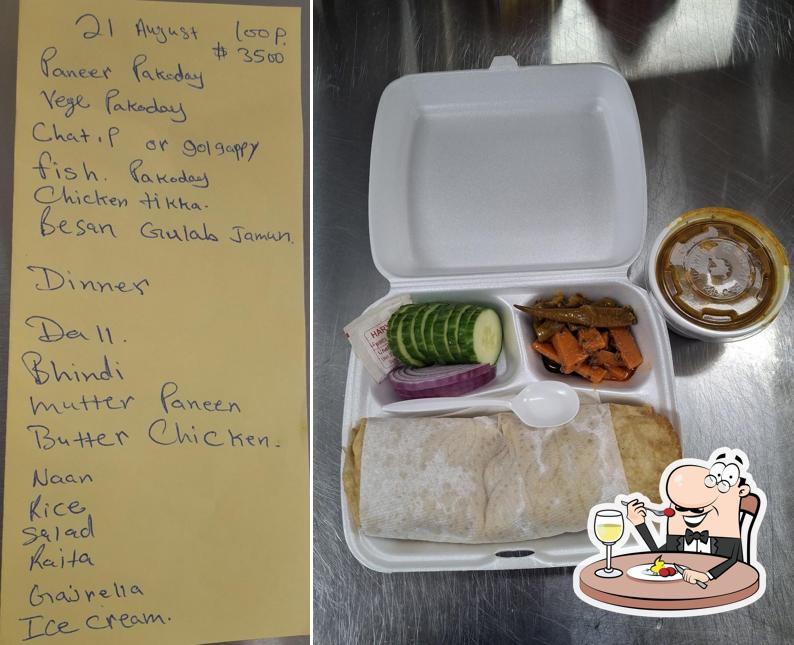 21 August 100 P.
$ 3500
Paneer Pakoday
Vege Pakoday
Chat.P or golgappy
fish. Pakoday
Chicken tikka.
Besan Gulab Jamun.
Dinner
Dall.
Bhindi
mutter Paneen
Butter Chicken.
Naan
Rice
Salad
Raita
Gajrella
Ice cream.